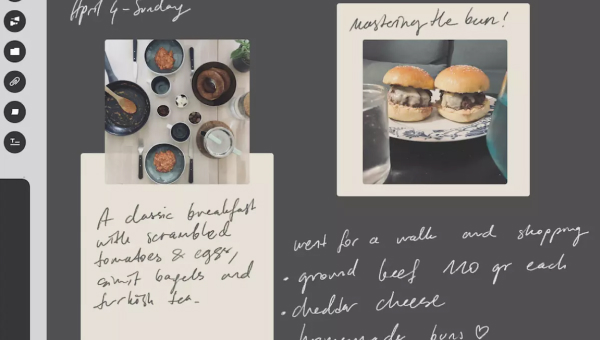 April 4 - Sunday
mastering the bun!
A classic breakfast
with scrambled
tomatoes & eggs,
simit bagels and
turkish tea.
went for a walk and shopping
• ground beef 110 gr each
• cheddar cheese
homemade buns ♡